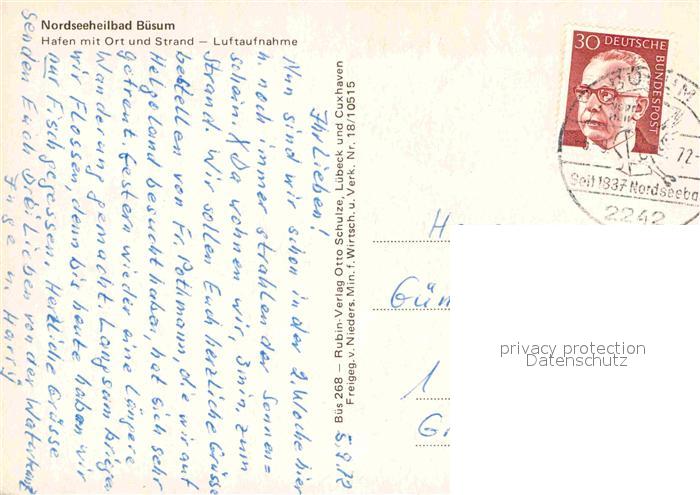 Nordseeheilbad Büsum
Hafen mit Ort und Strand – Luftaufnahme
5.9.72
Ihr Lieben!
Nun sind wir schon in der 2. Woche hier
u. noch immer strahlender Sonnen=
schein. X Da wohnen wir, 3 min. zum
Strand. Wir sollen Euch herzliche Grüsse
bestellen von Fr. Pottmann, die wir auf
Helgoland besucht haben, hat sich sehr
gefreut. Gestern wieder eine längere
Wanderung gemacht. Langsam kriegen
wir Flossen, denn bis heute haben wir
nur Fisch gegessen. Herzliche Grüsse
senden Euch drei Lieben von der Waterkant
Inge u. Harry
Büs 268 – Rubin-Verlag Otto Schulze, Lübeck und Cuxhaven
Freigeg. v. Nieders. Min. f. Wirtsch. u. Verk. Nr. 18/10515
30 DEUTSCHE
BUNDESPOST
BÜSUM
72-
Seit 1837 Nordseeba
2242
H
Gün
1
G
privacy protection
Datenschutz